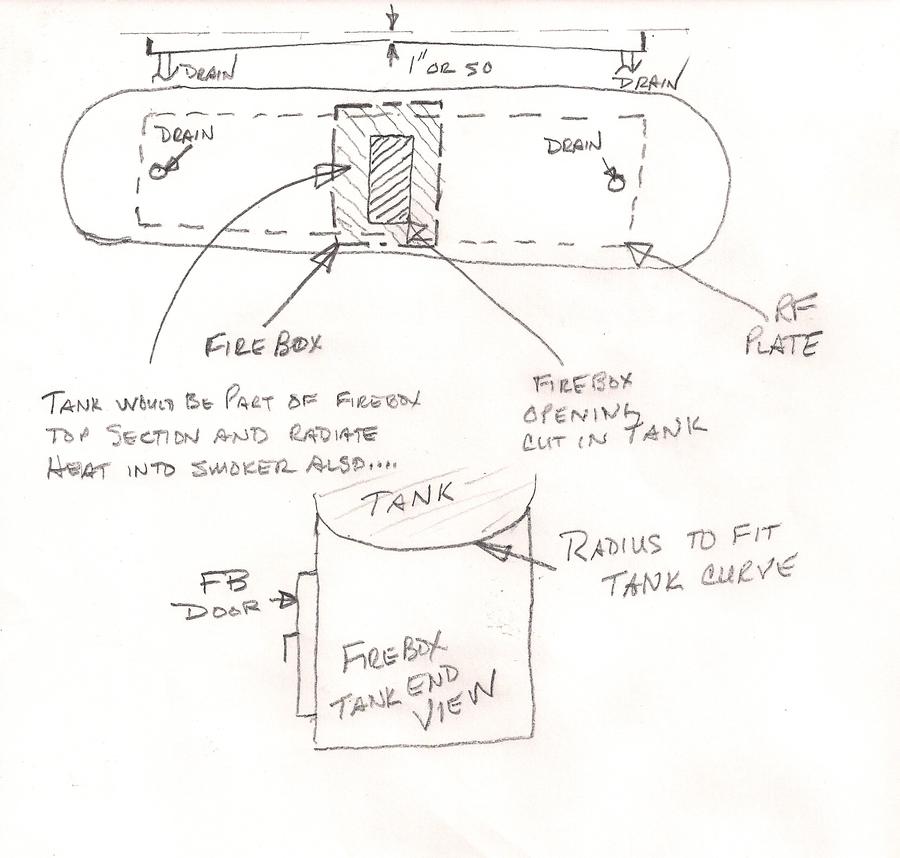 1" OR SO
DRAIN
DRAIN
DRAIN
DRAIN
FIREBOX
RF
PLATE
TANK WOULD BE PART OF FIREBOX
TOP SECTION AND RADIATE
HEAT INTO SMOKER ALSO....
FIREBOX
OPENING
CUT IN TANK
TANK
RADIUS TO FIT
TANK CURVE
FB
DOOR
FIREBOX
TANK END
VIEW